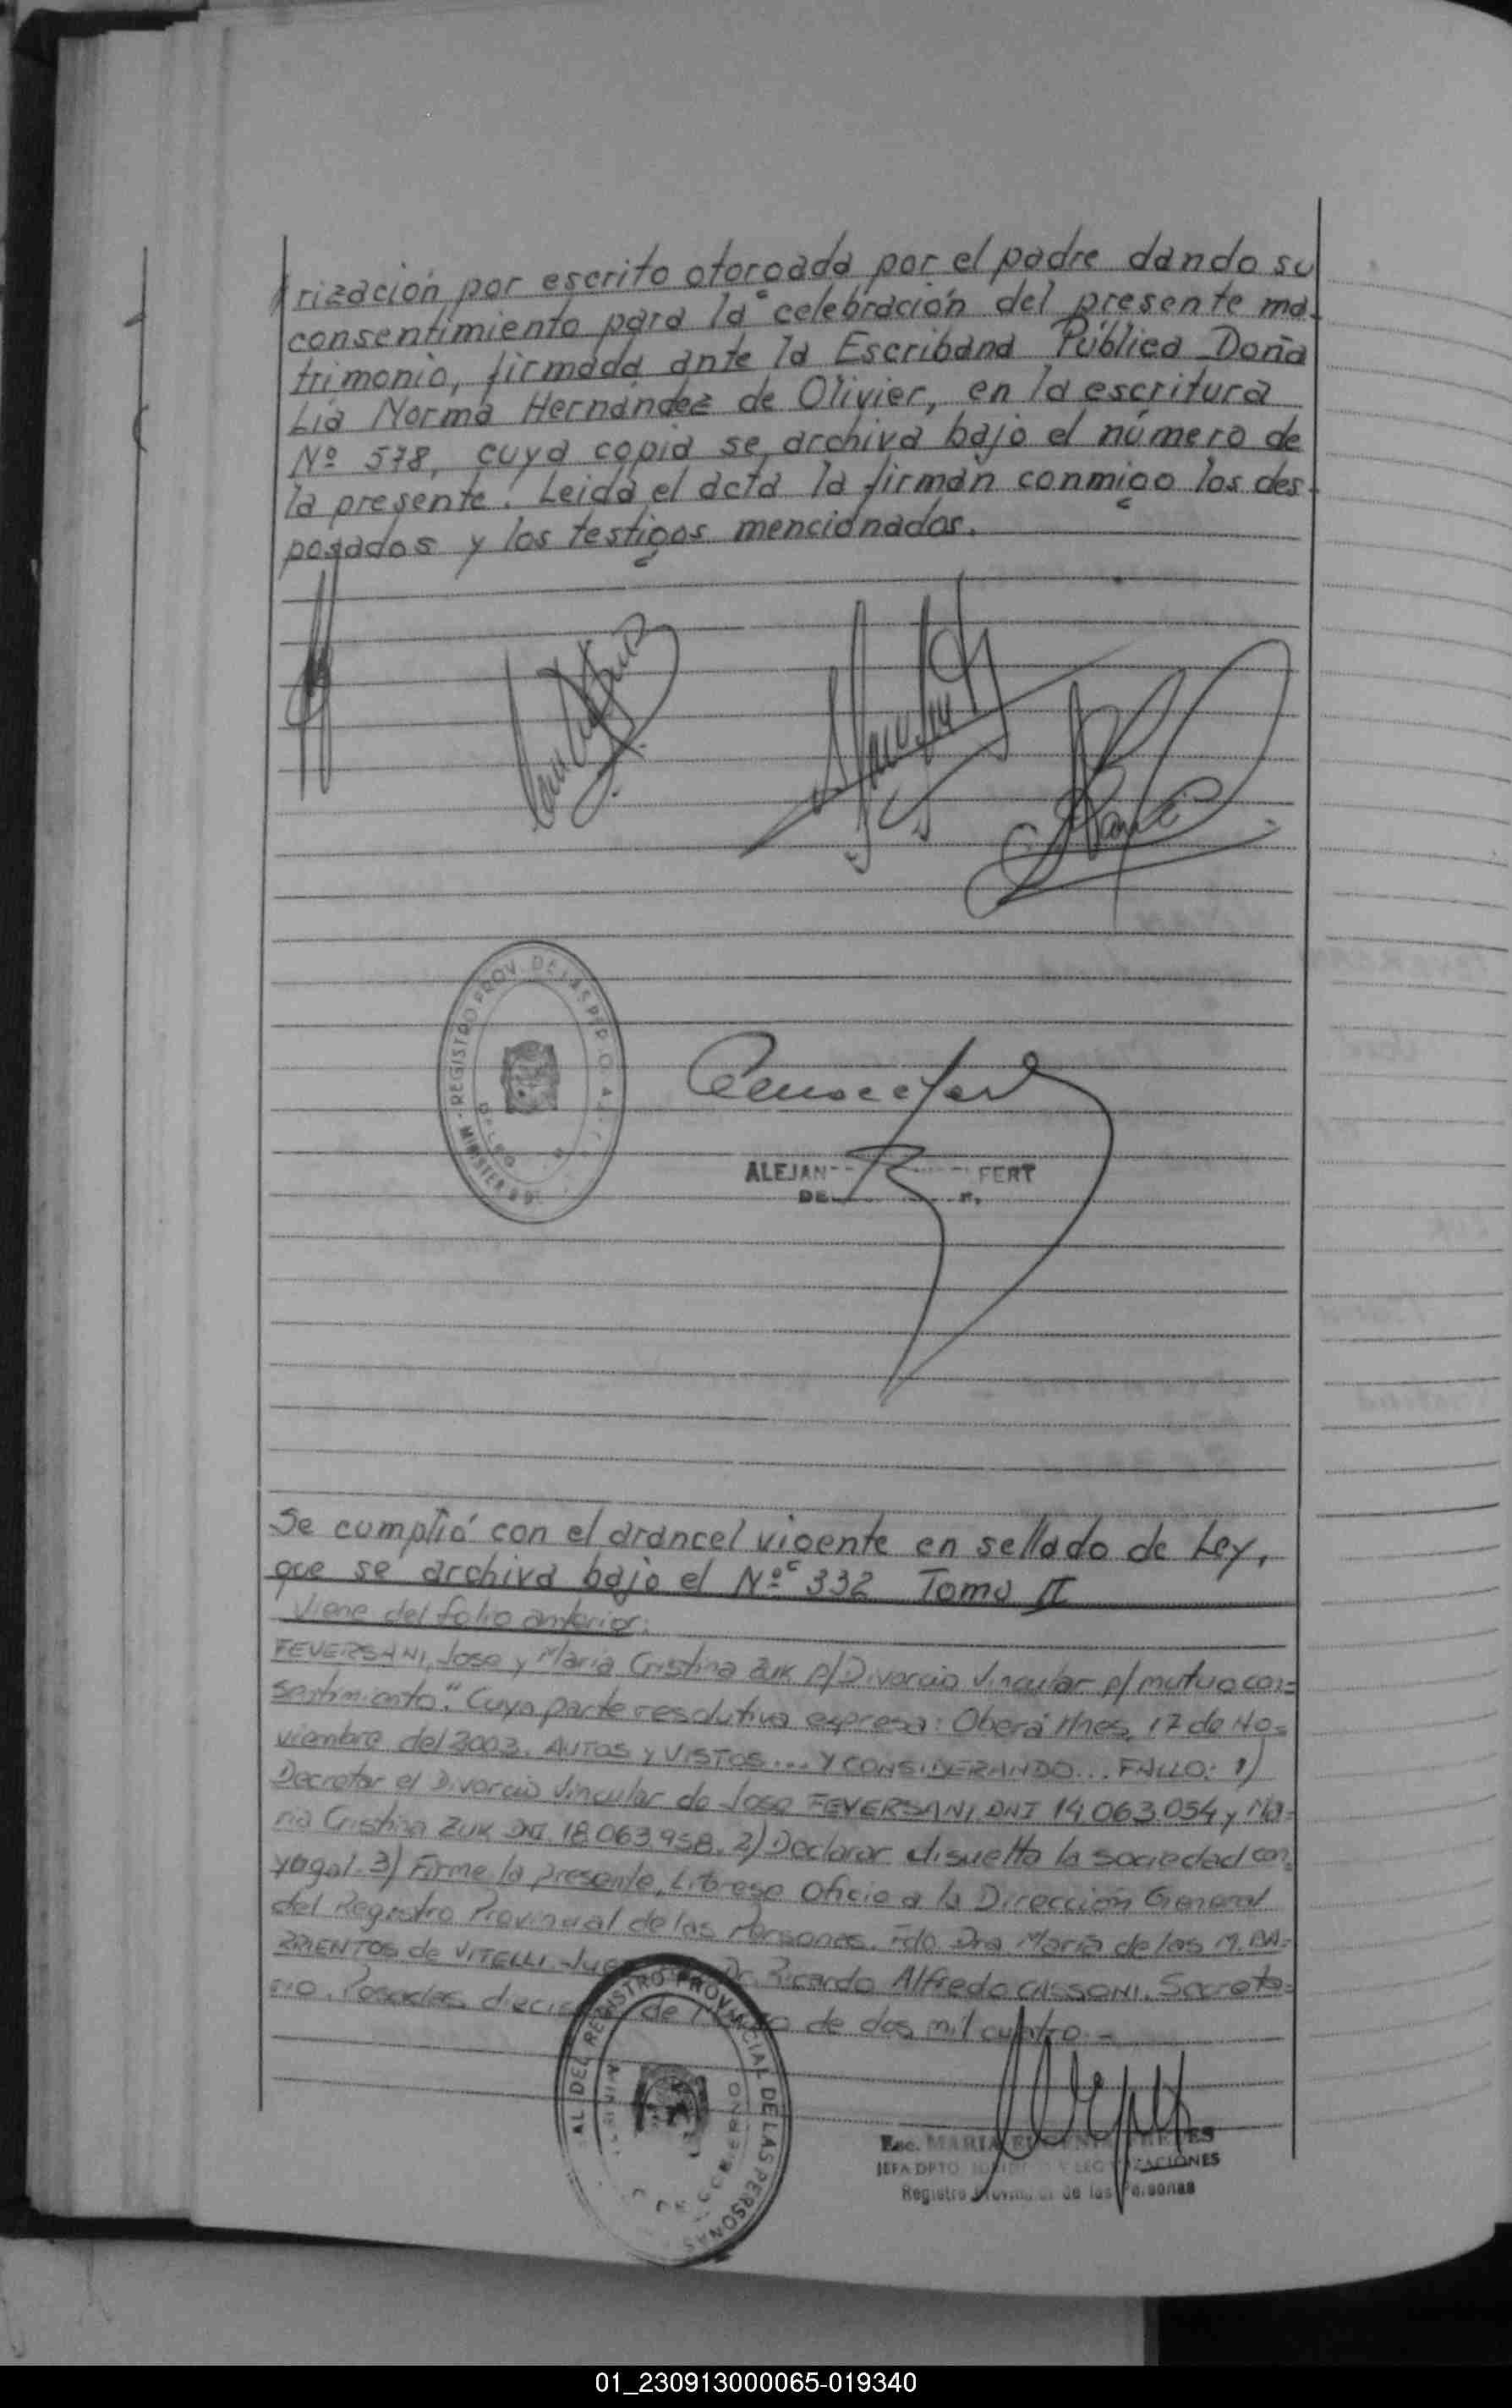 rización por escrito otorgada por el padre dando su
consentimiento para la celebración del presente ma-
trimonio, firmada ante la Escribana Pública Doña
Lia Norma Hernández de Olivier, en la escritura
Nº 578, cuya copia se archiva bajo el número de
la presente. Leida el acta la firman conmigo los des-
posados y los testigos mencionados.
REGISTRO PROV. DE LAS PER
MINISTER
ALEJAN FERT
DE
Se cumplió con el arancel vigente en sellado de Ley,
que se archiva bajo el Nº 332 Tomo II
Viene del folio anterior:
FEVERSANI, Jose y Maria Cristina ZUK p/Divorcio Vincular p/ mutuo con=
sentimiento". Cuya parte resolutiva expresa: Oberá Mnes, 17 de No=
viembre del 2003. AUTOS y VISTOS... Y CONSIDERANDO... FALLO: 1)
Decretar el Divorcio Vincular de Jose FEVERSANI, DNI 14.063.054 y Ma=
ria Cristina ZUK DNI. 18.063.958. 2) Declarar disuelta la sociedad con
yugal. 3) Firme la presente, Librese Oficio a la Dirección General
del Registro Provincial de las Personas. Fdo. Dra Maria de las M. BA=
RRIENTOS de VITELLI - Dr. Ricardo Alfredo CASSONI. Secreta=
rio. Posadas, de de dos mil cuatro.-
AL DEL REGISTRO PROVINCIAL DE LAS PERSONAS
GOBIERNO
Esc. MARIA EUGENIA
JEFA DPTO. ZACIONES
Registro Provincial de las Personas
01_230913000065-019340